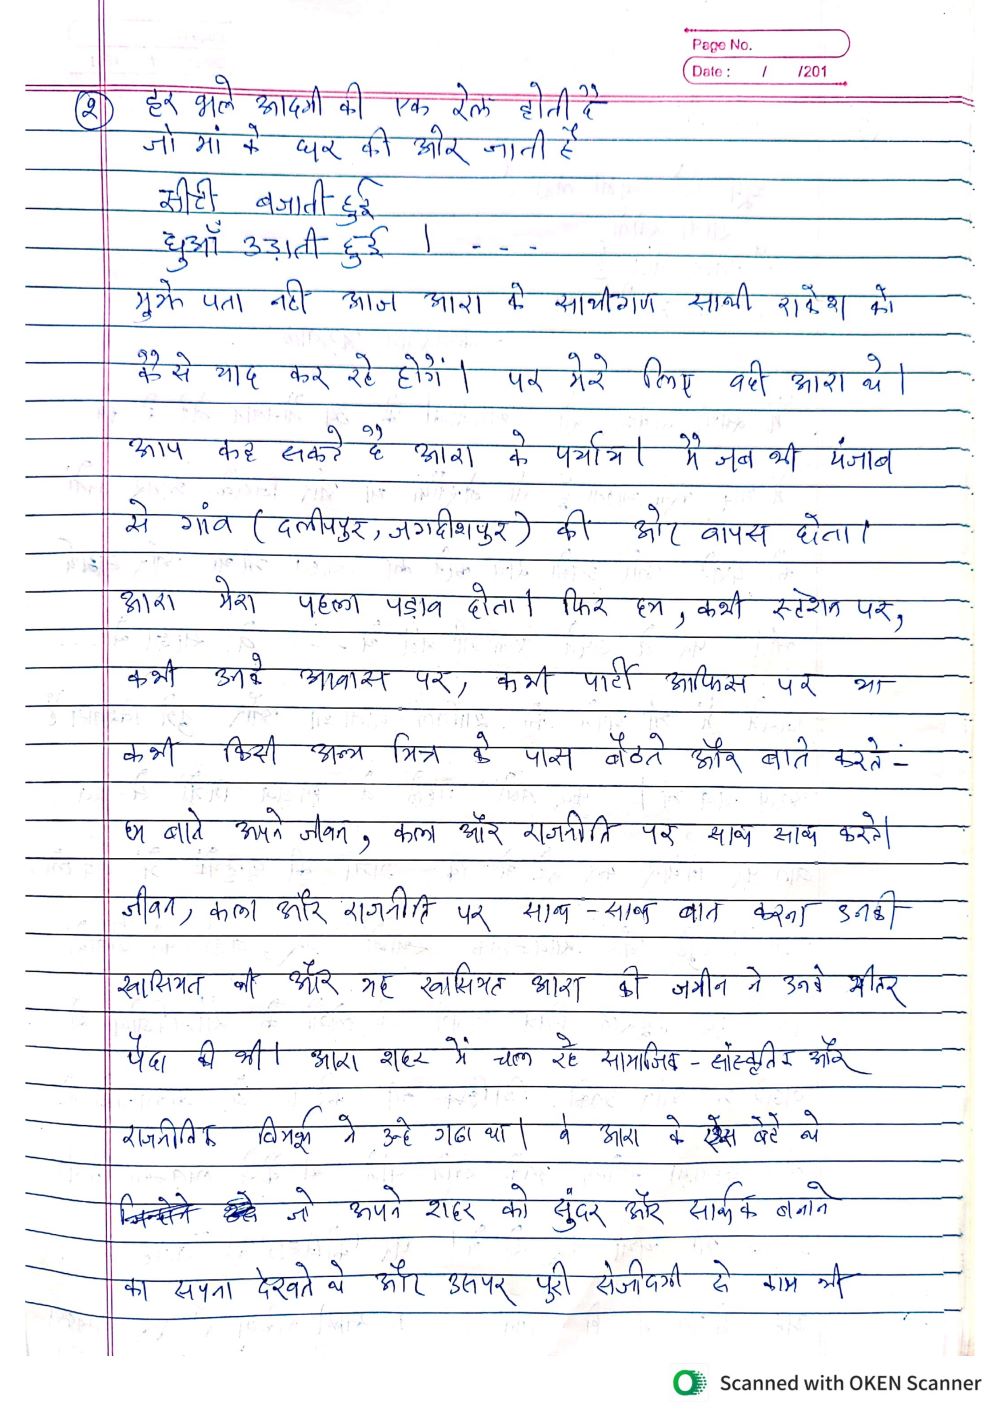 Page No.
Date : / /201
२ हर भले आदमी की एक रेल होती है
जो मां के घर की ओर जाती है
सीटी बजाती हुई
धुआँ उड़ाती हुई । - - -
मुझे पता नहीं आज आरा के साथीगण साथी राकेश को
कैसे याद कर रहे होगें। पर मेरे लिए वही आरा थे।
आप कह सकते है आरा के पर्याय। मैं जब भी पंजाब
से गांव (दलीपपुर, जगदीशपुर) की ओर वापस होता।
आरा मेरा पहला पड़ाव होता। फिर हम, कभी स्टेशन पर,
कभी उनके आवास पर, कभी पार्टी आफिस पर या
कभी किसी अन्य मित्र के पास बैठते और बाते करते -
हम बाते अपने जीवन, कला और राजनीति पर साथ साथ करते।
जीवन, कला और राजनीति पर साथ - साथ बात करना उनकी
खासियत थी और यह खासियत आरा की जमीन ने उनके भीतर
पैदा की थी। आरा शहर में चल रहे सामाजिक - सांस्कृतिक और
राजनीतिक विमर्श ने उन्हे गढा था। वे आरा के ऐसे बेटे थे
जिन्होने जो अपने शहर को सुंदर और सार्थक बनाने
का सपना देखते थे और उसपर पुरी संजीदगी से काम भी
Scanned with OKEN Scanner